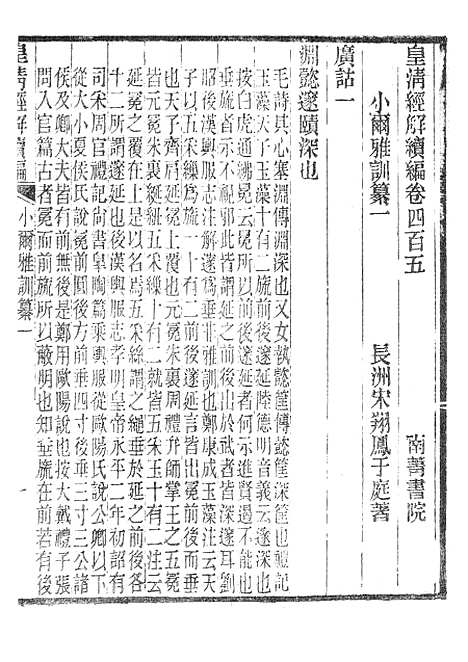 皇清經解續編卷四百五　南菁書院
小爾雅訓纂一　長洲宋翔鳳于庭著
廣詁一
淵懿邃賾深也
毛詩其心塞淵傳淵深也又女執懿筐傳懿筐深筐也禮記
玉藻天子玉藻十有二旒前後邃延陸德明音義云邃深也
按白虎通紼冕云冕所以前後邃延者何示進賢退不能也
垂旒者示不視邪此皆謂延之前後出於武者皆深邃耳劉
昭後漢輿服志注解邃爲垂非雅訓也鄭康成玉藻注云天
子以五采繅爲旒旒十有二前後邃延者言皆出冕前後而垂
也天子齊肩延冕上覆也元冕朱裏周禮弁師掌王之五冕
皆元冕朱裏延紐五采繅十有二就皆五采玉十有二注云
延冕之覆在上是以名焉五采絲謂之繩垂於延之前後各
十二所謂邃延也後漢輿服志孝明皇帝永平二年初詔有
司采周官禮記尚書皋陶篇乘輿服從歐陽氏說公卿以下
從大小夏侯氏說冕前圓後方前垂四寸後垂三寸三公諸
侯及卿大夫皆有前無後是鄭用歐陽說也按大戴禮子張
問入官篇古者冕而前旒所以蔽明也知垂旒在前若有後
皇清經解續編　小爾雅訓纂一　一